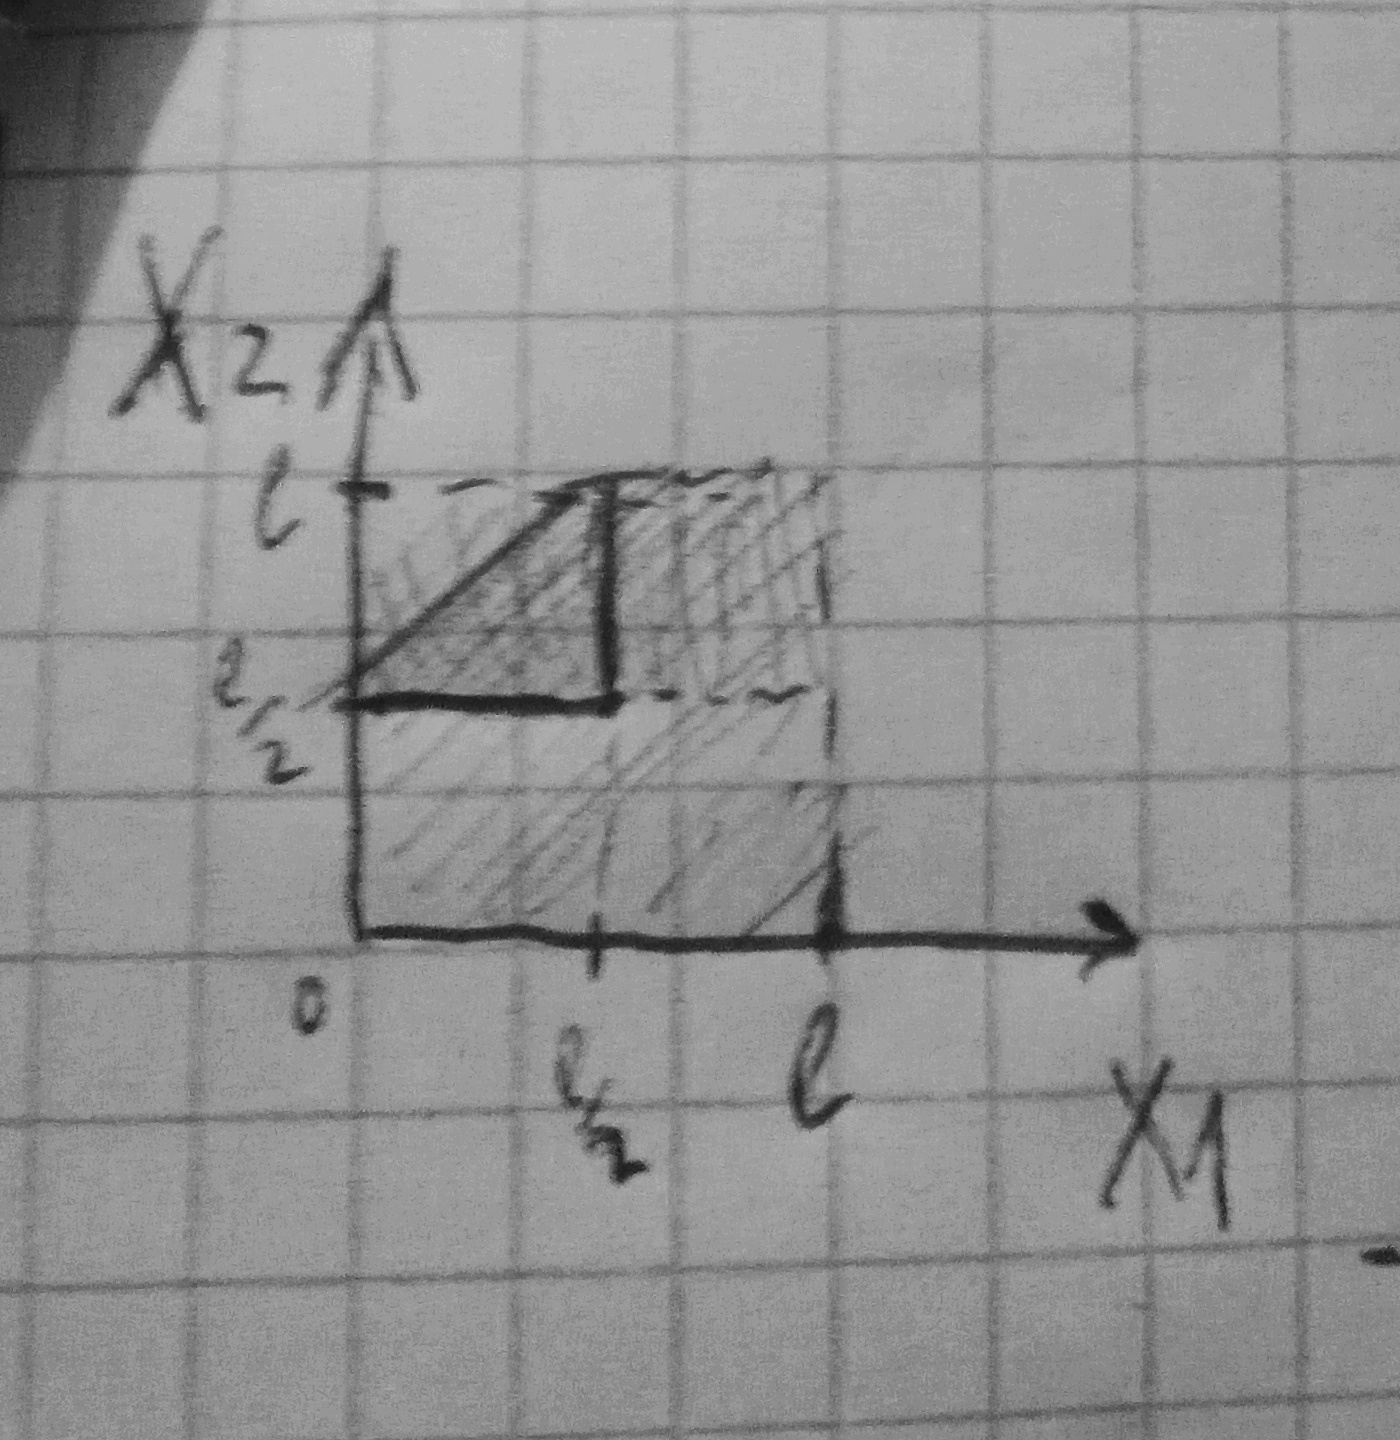 X2
l
l/2
0
l/2
l
X1